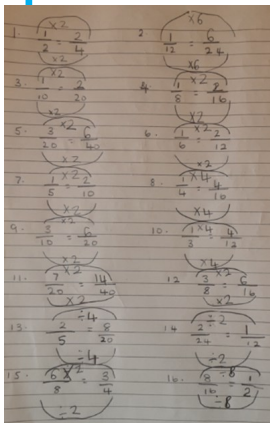 1. ×2 1/2 = 2/4 ×2
2. ×6 1/12 = 6/24 ×6
3. ×2 1/10 = 2/20 ×2
4. ×2 1/8 = 2/16 ×2
5. ×2 3/20 = 6/40 ×2
6. ×2 1/6 = 2/12 ×2
7. ×2 1/5 = 2/10 ×2
8. ×4 1/4 = 4/10 ×4
9. ×2 3/10 = 6/20 ×2
10. ×4 1/3 = 4/12 ×4
11. ×2 7/20 = 14/40 ×2
12 ×2 3/8 = 6/16 ×2
13. ÷4 2/5 = 8/20 ÷4
14 ÷2 2/24 = 1/12 ÷2
15. 6/8 = 3/4 ÷2
16. ÷8 8/16 = 1/2 ÷8